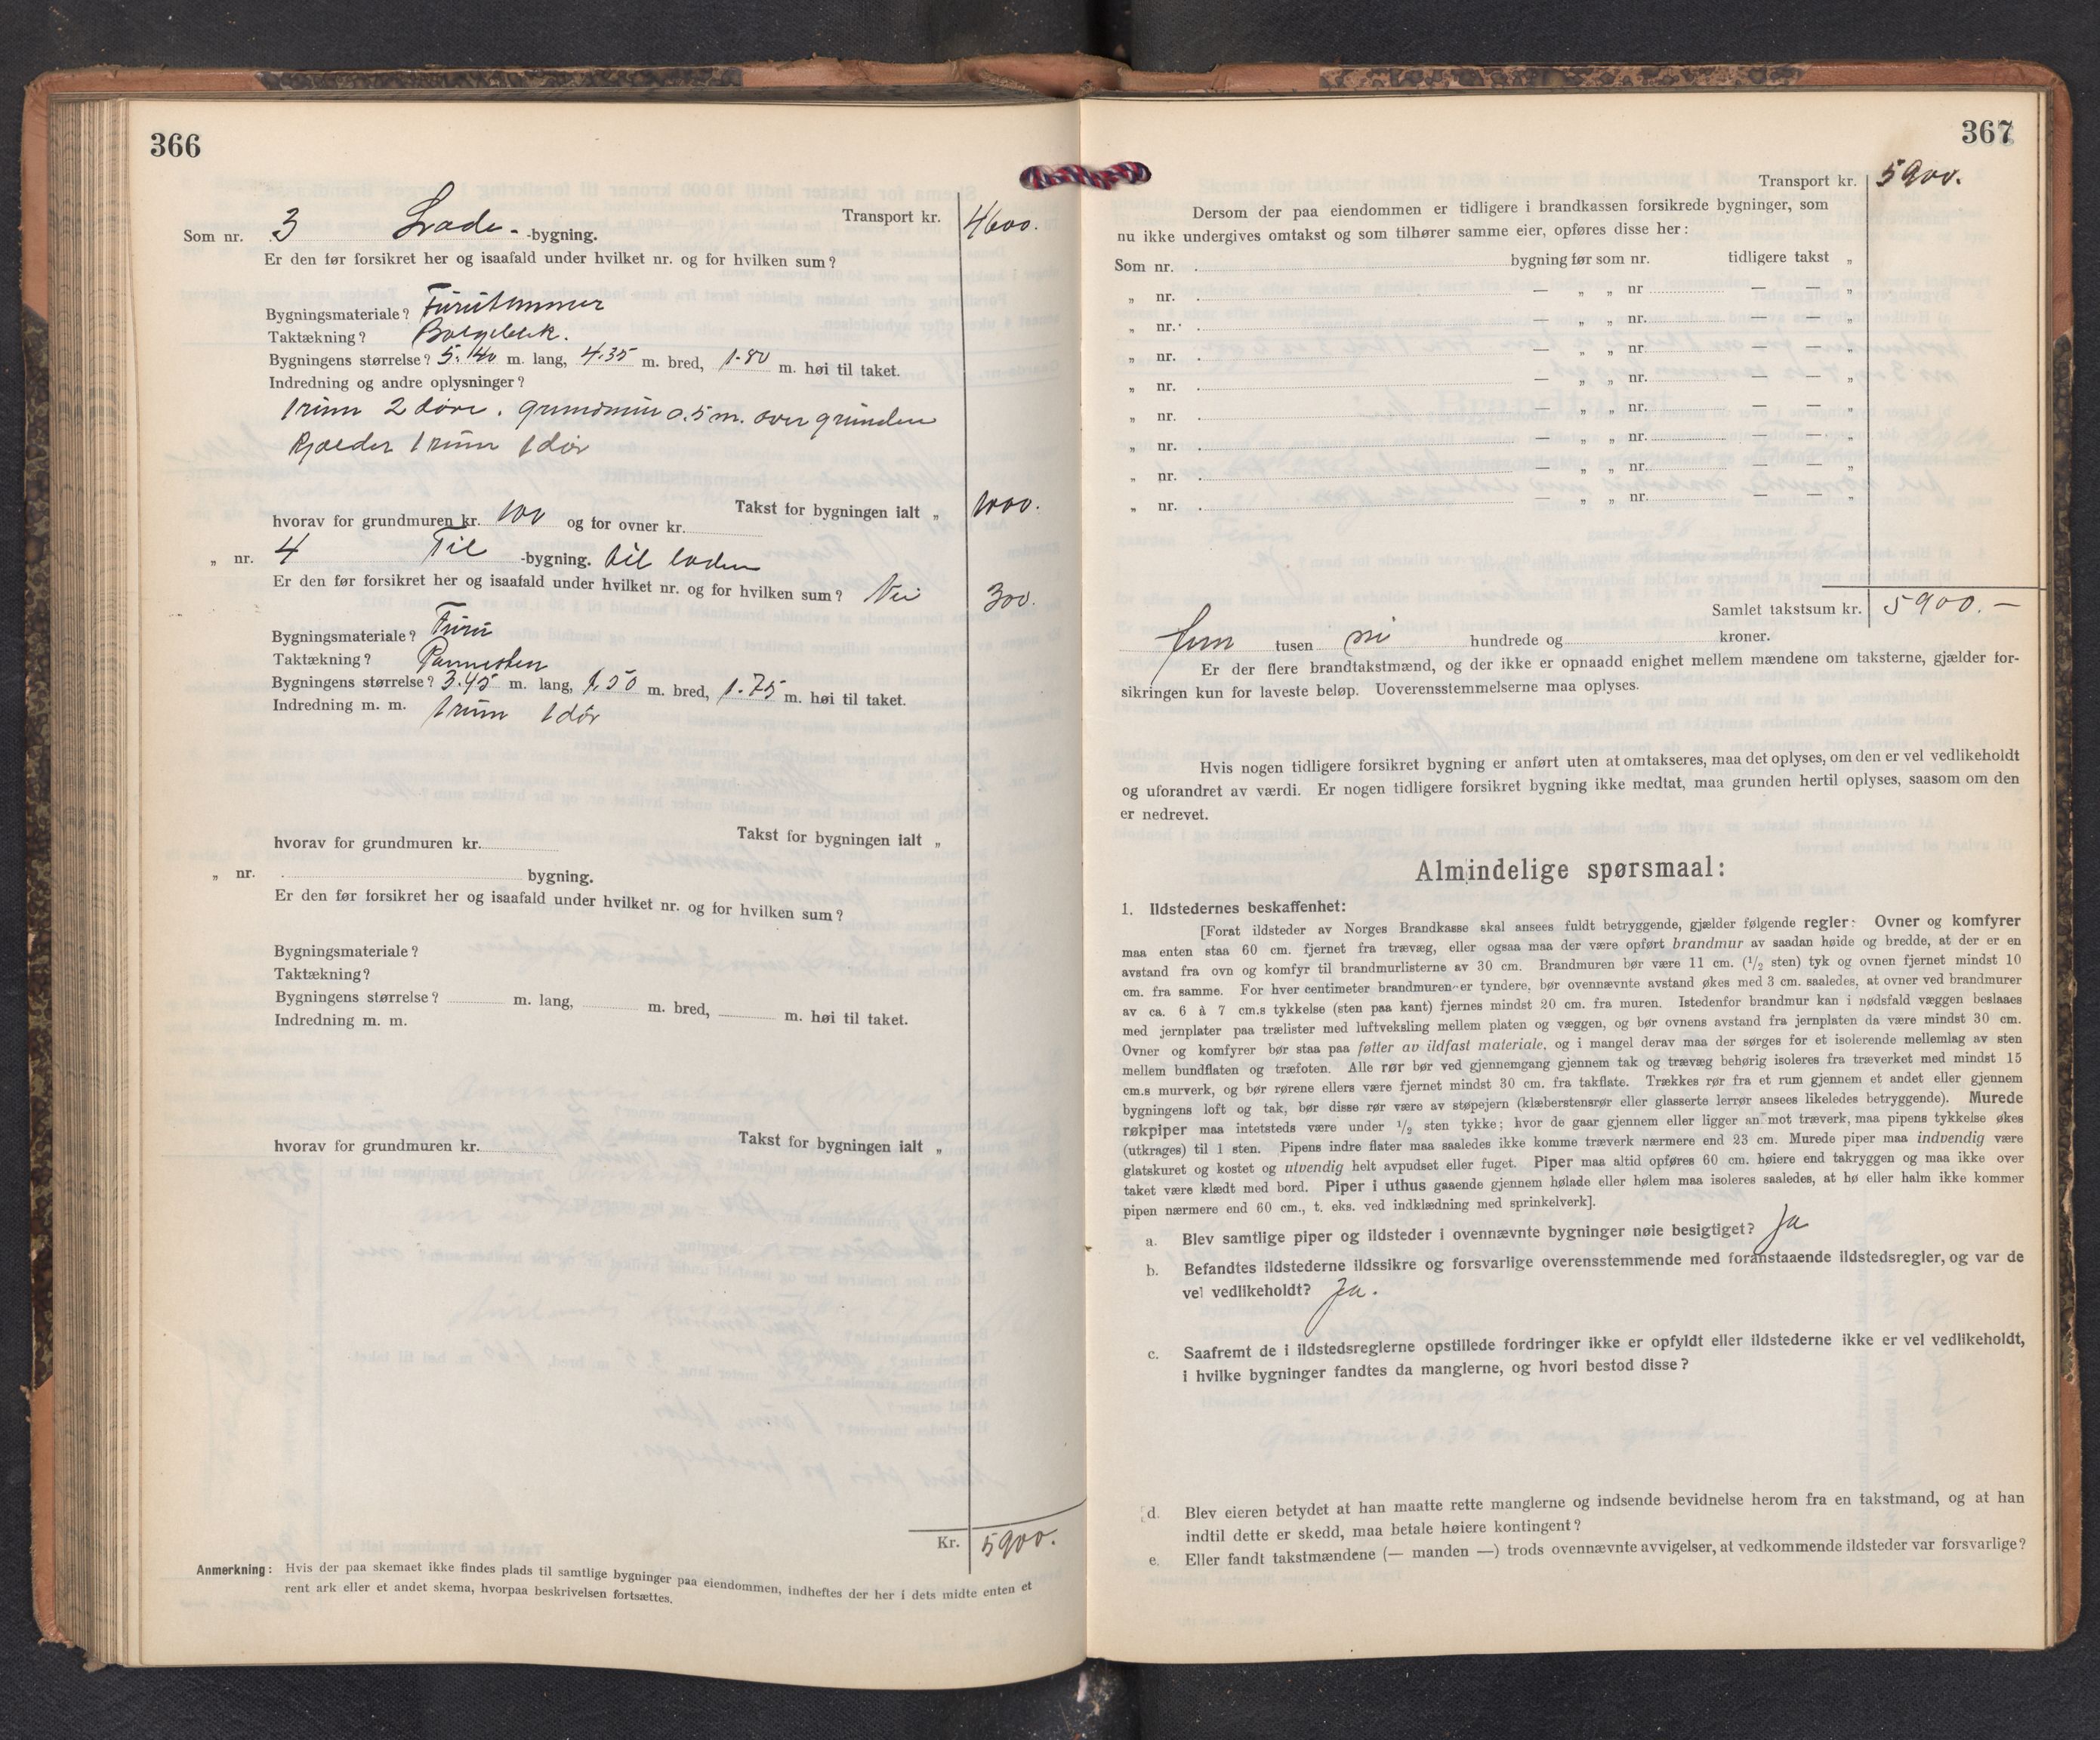 366
Transport kr. 4600.
Som nr. 3 Lade- -bygning.
Er den før forsikret her og isaafald under hvilket nr. og for hvilken sum?
Bygningsmateriale? Furutømmer
Taktækning? Bølgeblik.
Bygningens størrelse? 5.40 m. lang, 4.35 m. bred, 1.80 m. høi til taket.
Indredning og andre oplysninger?
1 rum 2 døre. grundmur 0.5 m. over grunden
Kjælder 1 rum 1 dør
Takst for bygningen ialt „ 1000.
hvorav for grundmuren kr. 100 og for ovner kr.
„ nr. 4 Til -bygning. til laden
Er den før forsikret her og isaafald under hvilket nr. og for hvilken sum? Nei 300.
Bygningsmateriale? Furu
Taktækning? Pannesten
Bygningens størrelse? 3.45 m. lang, 1.50 m. bred, 1.75 m. høi til taket.
Indredning m. m. 1 rum 1 dør
Takst for bygningen ialt „
hvorav for grundmuren kr.
„ nr. bygning.
Er den før forsikret her og isaafald under hvilket nr. og for hvilken sum?
Bygningsmateriale?
Taktækning?
Bygningens størrelse? m. lang, m. bred, m. høi til taket.
Indredning m. m.
Takst for bygningen ialt „
hvorav for grundmuren kr.
Kr. 5900.
Anmerkning: Hvis der paa skemaet ikke findes plads til samtlige bygninger paa eiendommen, indheftes der her i dets midte enten et
rent ark eller et andet skema, hvorpaa beskrivelsen fortsættes.
367
Transport kr. 5900.
Dersom der paa eiendommen er tidligere i brandkassen forsikrede bygninger, som
nu ikke undergives omtakst og som tilhører samme eier, opføres disse her:
Som nr. bygning før som nr. tidligere takst „
„ nr. — „ „ nr — — „
„ nr. — „ „ nr. — — „
„ nr. — „ „ nr. — — „
„ nr. — „ „ nr. — — „
„ nr. — „ „ nr. — — „
„ nr. — „ „ nr. — — „
„ nr. — „ „ nr. — — „
„ nr. — „ „ nr. — — „
Samlet takstsum kr. 5900.—
fem tusen ni hundrede og kroner.
Er der flere brandtakstmænd, og der ikke er opnaadd enighet mellem mændene om taksterne, gjælder for-
sikringen kun for laveste beløp. Uoverensstemmelserne maa oplyses.
Hvis nogen tidligere forsikret bygning er anført uten at omtakseres, maa det oplyses, om den er vel vedlikeholdt
og uforandret av værdi. Er nogen tidligere forsikret bygning ikke medtat, maa grunden hertil oplyses, saasom om den
er nedrevet.
Almindelige spørsmaal:
1. Ildstedernes beskaffenhet:
[Forat ildsteder av Norges Brandkasse skal ansees fuldt betryggende, gjælder følgende regler: Ovner og komfyrer
maa enten staa 60 cm. fjernet fra trævæg, eller ogsaa maa der være opført brandmur av saadan høide og bredde, at der er en
avstand fra ovn og komfyr til brandmurlisterne av 30 cm. Brandmuren bør være 11 cm. (1/2 sten) tyk og ovnen fjernet mindst 10
cm. fra samme. For hver centimeter brandmuren er tyndere, bør ovennævnte avstand økes med 3 cm. saaledes, at ovner ved brandmurer
av ca. 6 à 7 cm.s tykkelse (sten paa kant) fjernes mindst 20 cm. fra muren. Istedenfor brandmur kan i nødsfald væggen beslaaes
med jernplater paa trælister med luftveksling mellem platen og væggen, og bør ovnens avstand fra jernplaten da være mindst 30 cm.
Ovner og komfyrer bør staa paa føtter av ildfast materiale, og i mangel derav maa der sørges for et isolerende mellemlag av sten
mellem bundflaten og træfoten. Alle rør bør ved gjennemgang gjennem tak og trævæg behørig isoleres fra træverket med mindst 15
cm.s murverk, og bør rørene ellers være fjernet mindst 30 cm. fra takflate. Trækkes rør fra et rum gjennem et andet eller gjennem
bygningens loft og tak, bør disse rør være av støpejern (klæberstensrør eller glasserte lerrør ansees likeledes betryggende). Murede
røkpiper maa intetsteds være under 1/2 sten tykke; hvor de gaar gjennem eller ligger an mot træverk, maa pipens tykkelse økes
(utkrages) til 1 sten. Pipens indre flater maa saaledes ikke komme træverk nærmere end 23 cm. Murede piper maa indvendig være
glatskuret og kostet og utvendig helt avpudset eller fuget. Piper maa altid opføres 60 cm. høiere end takryggen og maa ikke over
taket være klædt med bord. Piper i uthus gaaende gjennem hølade eller hølem maa isoleres saaledes, at hø eller halm ikke kommer
pipen nærmere end 60 cm., t. eks. ved indklædning med sprinkelverk].
a. Blev samtlige piper og ildsteder i ovennævnte bygninger nøie besigtiget? Ja
b. Befandtes ildstederne ildssikre og forsvarlige overensstemmende med foranstaaende ildstedsregler, og var de
vel vedlikeholdt? Ja.
c. Saafremt de i ildstedsreglerne opstillede fordringer ikke er opfyldt eller ildstederne ikke er vel vedlikeholdt,
i hvilke bygninger fandtes da manglerne, og hvori bestod disse?
d. Blev eieren betydet at han maatte rette manglerne og indsende bevidnelse herom fra en takstmand, og at han
indtil dette er skedd, maa betale høiere kontingent?
e. Eller fandt takstmændene (— manden —) trods ovennævnte avvigelser, at vedkommende ildsteder var forsvarlige?